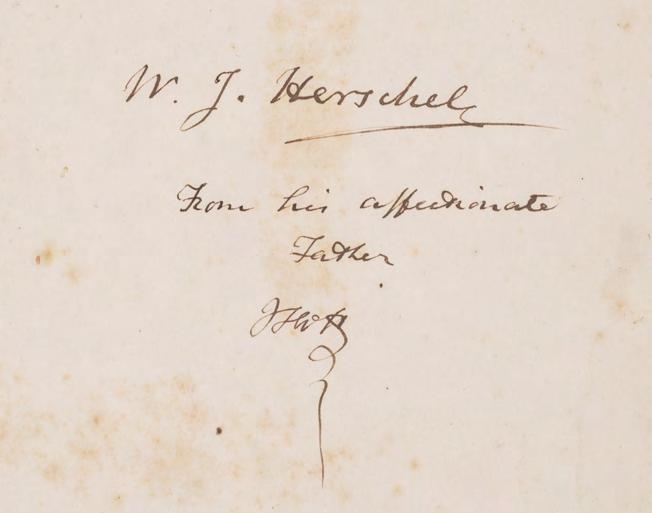 W. J. Herschel
From his affectionate
Father
JFWH